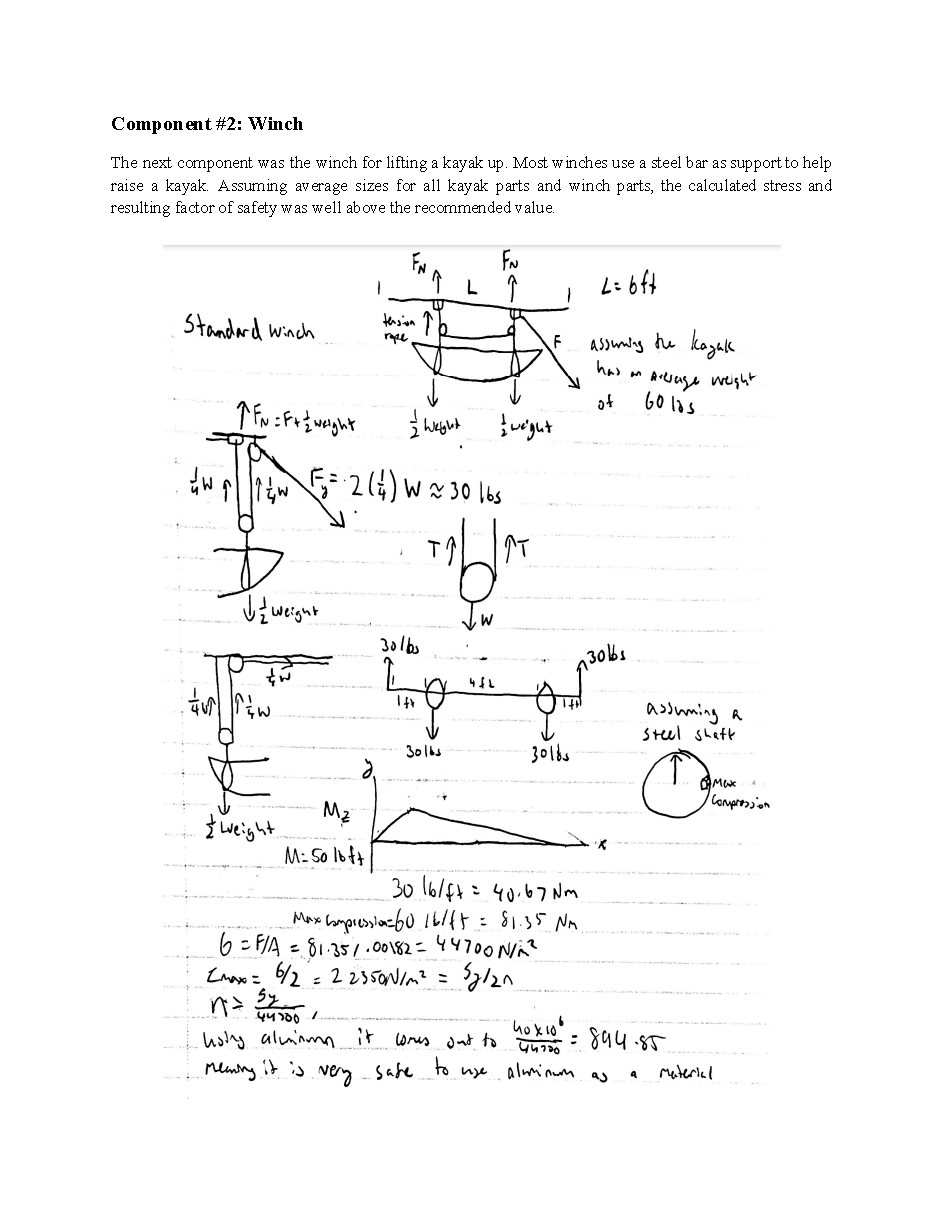 Component #2: Winch
The next component was the winch for lifting a kayak up. Most winches use a steel bar as support to help
raise a kayak. Assuming average sizes for all kayak parts and winch parts, the calculated stress and
resulting factor of safety was well above the recommended value.
FN FN
L
L = 6ft
Standard winch
tension
rope
F
assuming the kayak
has an average weight
of 60 lbs
1/2 weight 1/2 weight
FN = F + 1/2 weight
1/4 W 1/4 W
Fy = 2 (1/4) W ≈ 30 lbs
T T
W
1/2 weight
30 lbs 30 lbs
1/4 W
1/4 W 1/4 W
1ft 4ft 1ft
30 lbs 30 lbs
assuming a
steel shaft
Max
Compression
1/2 weight
y
Mz
x
M = 50 lb ft
30 lb/ft = 40.67 Nm
Max Compression = 60 lb/ft = 81.35 Nm
σ = F/A = 81.35/.00182 = 44700 N/m²
τmax = σ/2 = 22350 N/m² = Sy/2n
n ≥ Sy/44700,
using aluminum it comes out to 40x10⁶/44700 = 894.85
meaning it is very safe to use aluminum as a material